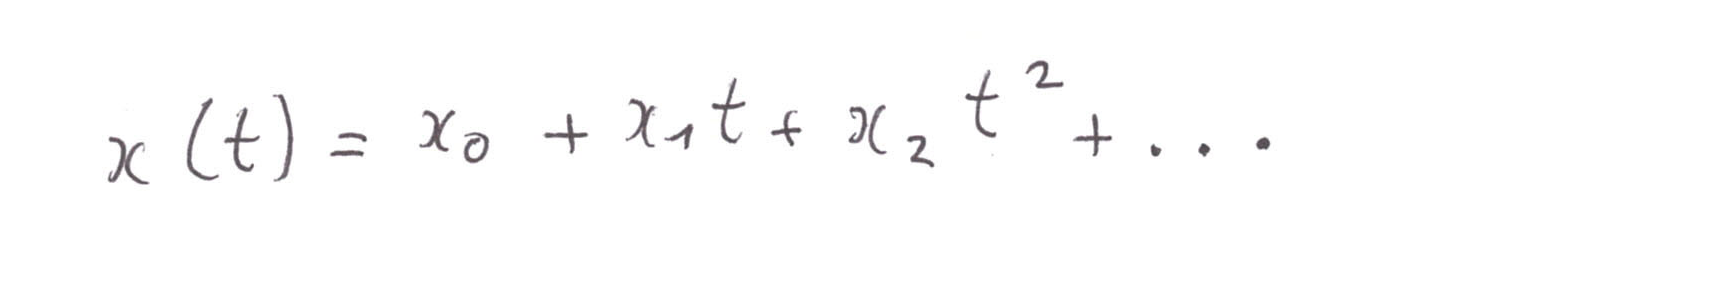 x(t) = x₀ + x₁t + x₂t² + ...